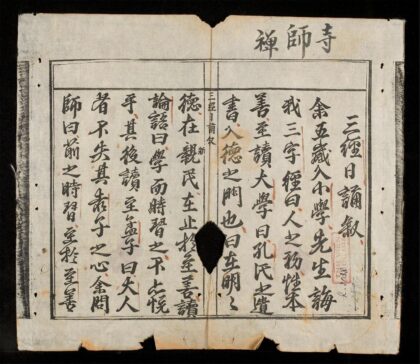 禪師寺
三經日誦敘
余五歲入小學先生誨
我三字經曰人之初性本
善至讀大學曰孔氏之遺
書入德之門也曰在明〻
三經日誦敘
德在親民在止於至善讀
新
論語曰學而時習之不亦悅
乎其後讀至孟子曰大人
者不失其赤子之心余問
師曰前之時習至於至善